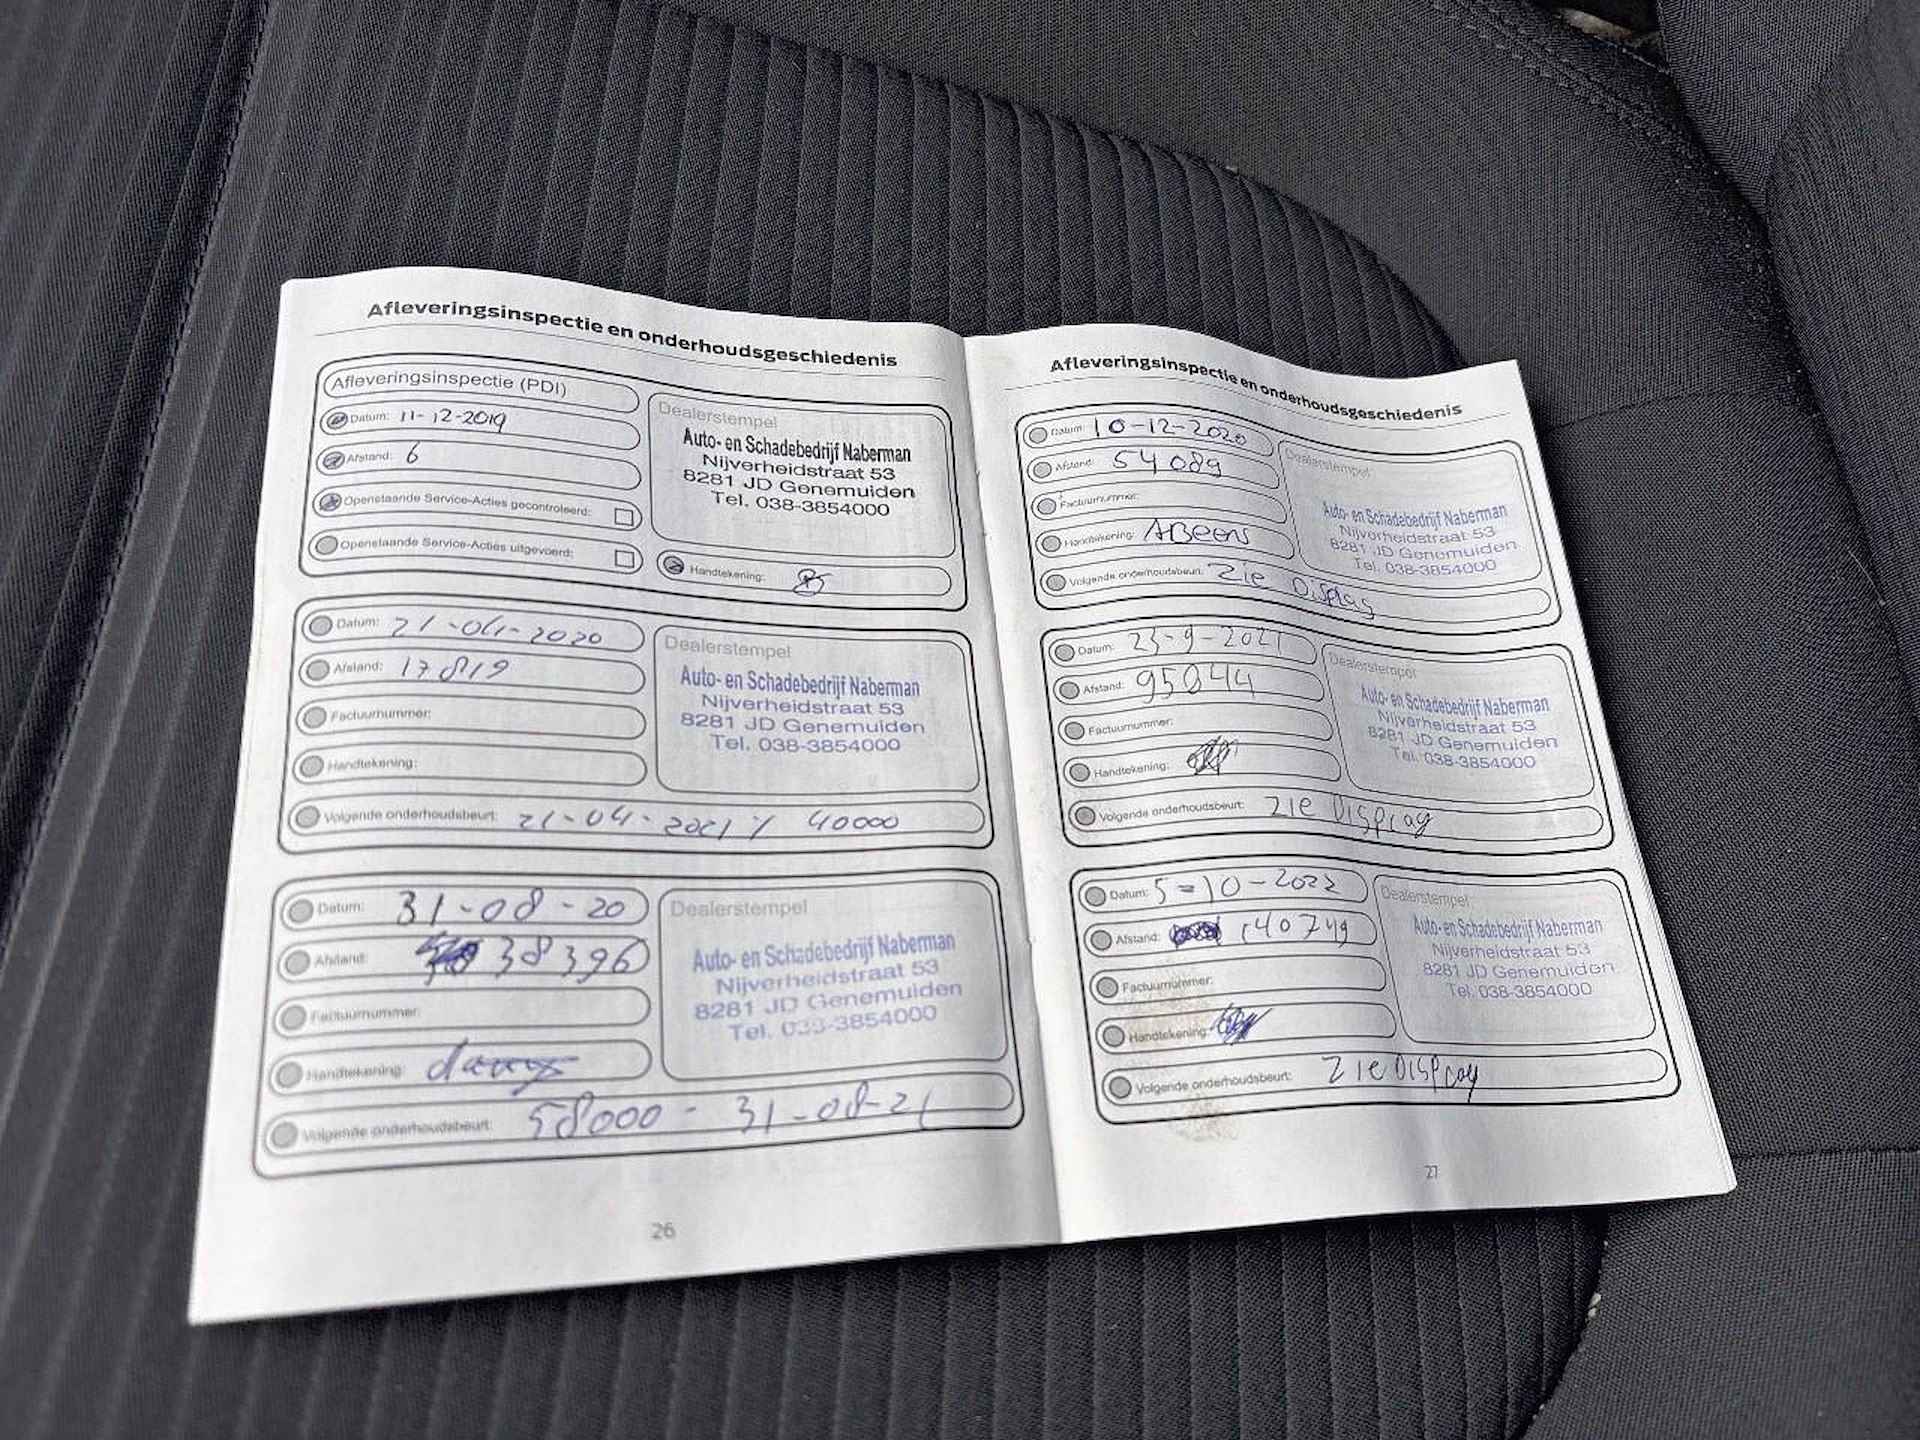 Afleveringsinspectie en onderhoudsgeschiedenis
Afleveringsinspectie (PDI)
Datum: 11-12-2019
Afstand: 6
Openstaande Service-Acties gecontroleerd:
Openstaande Service-Acties uitgevoerd:
Dealerstempel
Auto- en Schadebedrijf Naberman
Nijverheidstraat 53
8281 JD Genemuiden
Tel. 038-3854000
Handtekening:
Datum: 21-04-2020
Afstand: 17819
Factuurnummer:
Handtekening:
Volgende onderhoudsbeurt: 21-04-2021 / 40000
Dealerstempel
Auto- en Schadebedrijf Naberman
Nijverheidstraat 53
8281 JD Genemuiden
Tel. 038-3854000
Datum: 31-08-20
Afstand: 38396
Factuurnummer:
Handtekening:
Volgende onderhoudsbeurt: 58000 - 31-08-21
Dealerstempel
Auto- en Schadebedrijf Naberman
Nijverheidstraat 53
8281 JD Genemuiden
Tel. 038-3854000
26
Afleveringsinspectie en onderhoudsgeschiedenis
Datum: 10-12-2020
Afstand: 54089
Factuurnummer:
Handtekening:
Volgende onderhoudsbeurt: Zie Display
Dealerstempel
Auto- en Schadebedrijf Naberman
Nijverheidstraat 53
8281 JD Genemuiden
Tel. 038-3854000
Datum: 23-9-2021
Afstand: 95844
Factuurnummer:
Handtekening:
Volgende onderhoudsbeurt: Zie Display
Dealerstempel
Auto- en Schadebedrijf Naberman
Nijverheidstraat 53
8281 JD Genemuiden
Tel. 038-3854000
Datum: 5-10-2022
Afstand: 140749
Factuurnummer:
Handtekening:
Volgende onderhoudsbeurt: Zie Display
Dealerstempel
Auto- en Schadebedrijf Naberman
Nijverheidstraat 53
8281 JD Genemuiden
Tel. 038-3854000
27